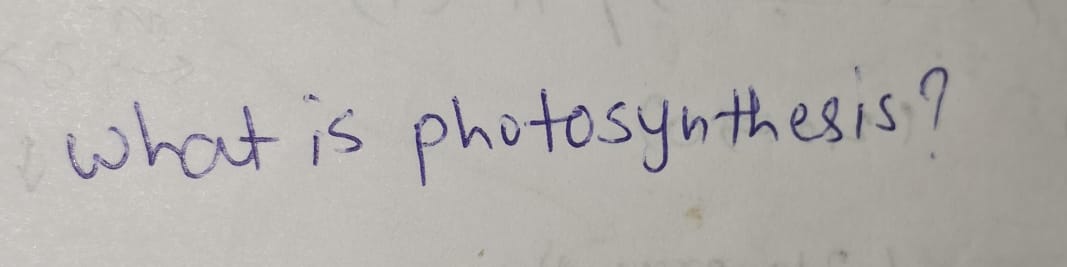 what is photosynthesis?